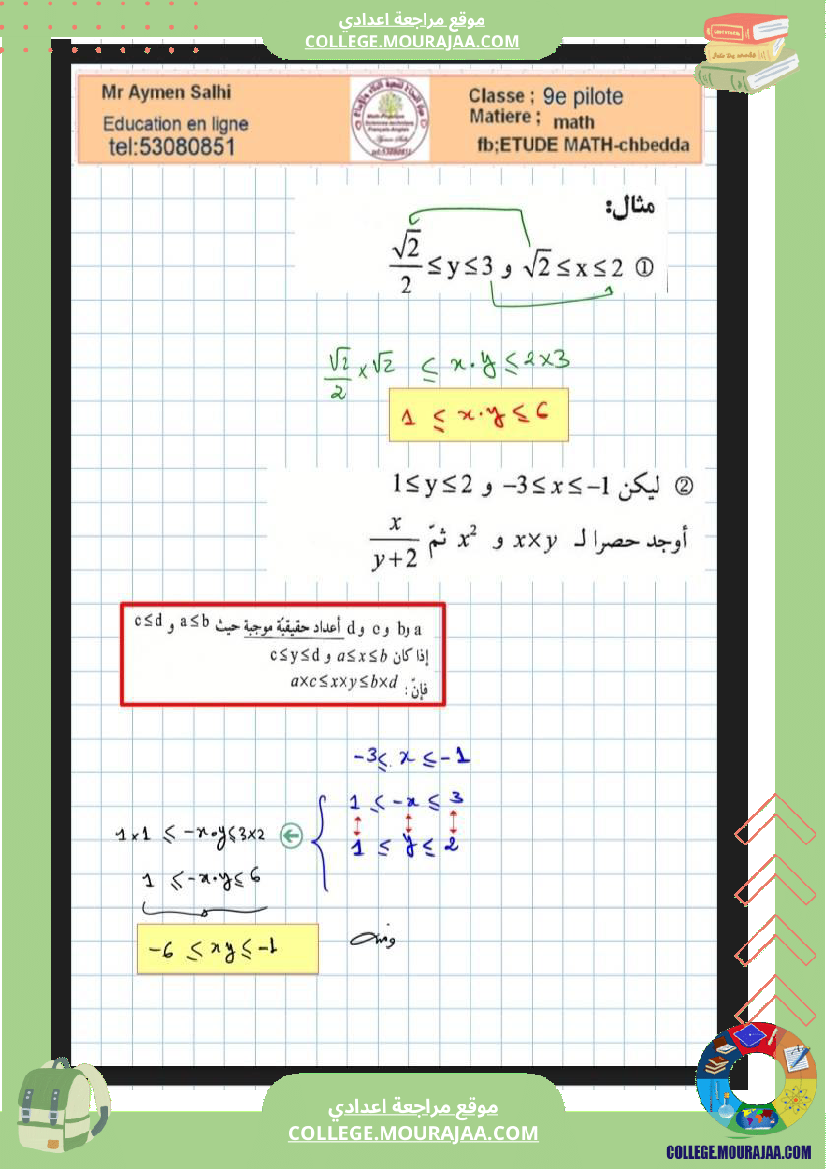 موقع مراجعة اعدادي
COLLEGE.MOURAJAA.COM
Mr Aymen Salhi
Education en ligne
tel:53080851
Classe ; 9e pilote
Matiére ; math
fb;ETUDE MATH-chbedda
مثال:
① √2 ≤ x ≤ 2 و √2/2 ≤ y ≤ 3
√2/2 × √2 ≤ x·y ≤ 2×3
1 ≤ x·y ≤ 6
② ليكن −3 ≤ x ≤ −1 و 1 ≤ y ≤ 2
أوجد حصرا لـ x×y و x² ثمّ x/(y+2)
a وb و c و d أعداد حقيقيّة موجبة حيث a≤b و c≤d
إذا كان a≤x≤b و c≤y≤d
فإنّ : a×c≤x×y≤b×d
-3 ≤ x ≤ -1
1 ≤ -x ≤ 3
1 ≤ y ≤ 2
1×1 ≤ -x·y ≤ 3×2
1 ≤ -x·y ≤ 6
ومنه
-6 ≤ xy ≤ -1
موقع مراجعة اعدادي
COLLEGE.MOURAJAA.COM
COLLEGE.MOURAJAA.COM